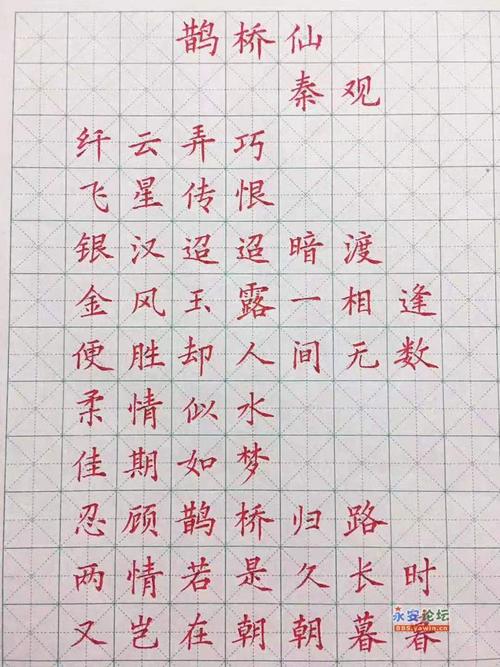 鹊桥仙
秦观
纤云弄巧
飞星传恨
银汉迢迢暗渡
金风玉露一相逢
便胜却人间无数
柔情似水
佳期如梦
忍顾鹊桥归路
两情若是久长时
又岂在朝朝暮暮
永安论坛
BBS.yawin.cn